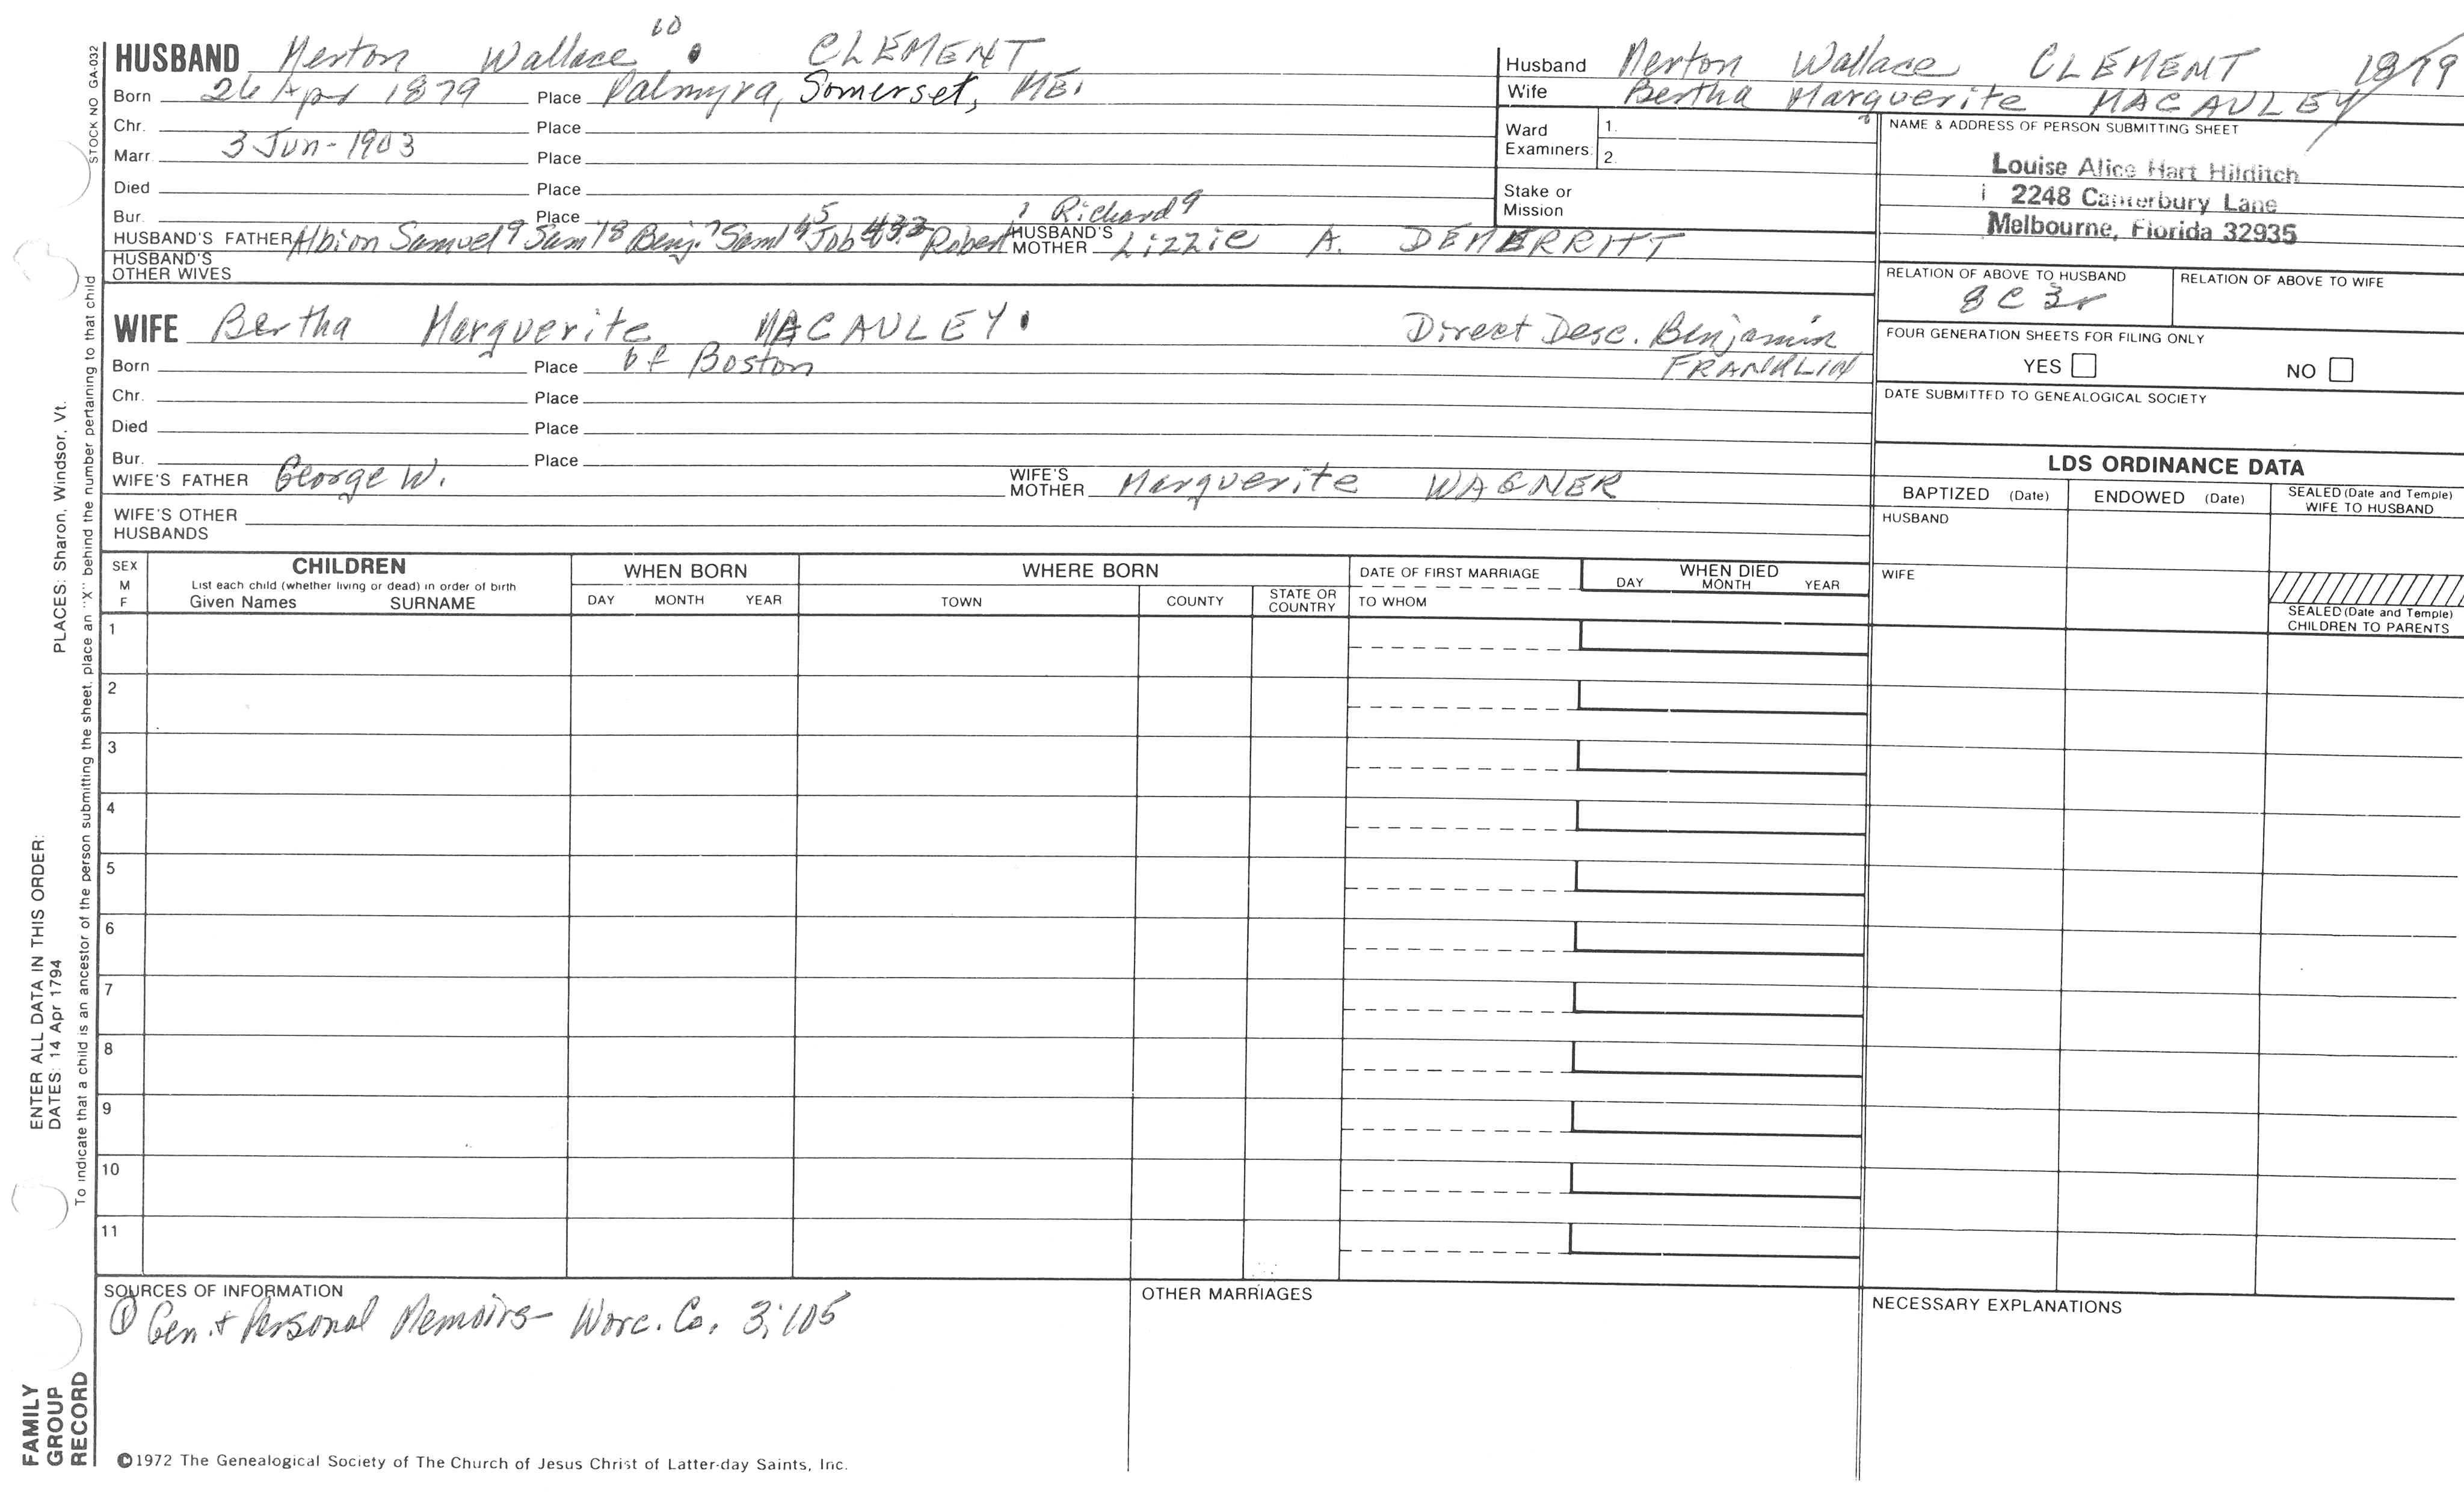 HUSBAND Merton Wallace 10 CLEMENT
Born 26 Apr 1879 Place Palmyra, Somerset, ME.
Chr. Place
Marr. 3 Jun - 1903 Place
Died Place
Bur. Place
HUSBAND'S FATHER Albion Samuel 9 Sam'l 8 Benj. 7 Saml Job 5 Robert Richard 9 HUSBAND'S MOTHER Lizzie A. DEMERRITT
HUSBAND'S OTHER WIVES
WIFE Bertha Marguerite MACAULEY Direct Desc. Benjamin FRANKLIN
Born Place of Boston
Chr. Place
Died Place
Bur. Place
WIFE'S FATHER George W. WIFE'S MOTHER Marguerite WAGNER
WIFE'S OTHER HUSBANDS
Husband Merton Wallace CLEMENT 1879
Wife Bertha Marguerite MACAULEY
Ward Examiners: 1.
2.
Stake or Mission
NAME & ADDRESS OF PERSON SUBMITTING SHEET
Louise Alice Hart Hilditch
2248 Canterbury Lane
Melbourne, Florida 32935
RELATION OF ABOVE TO HUSBAND RELATION OF ABOVE TO WIFE
8 C 3r
FOUR GENERATION SHEETS FOR FILING ONLY
YES NO
DATE SUBMITTED TO GENEALOGICAL SOCIETY
LDS ORDINANCE DATA
BAPTIZED (Date) ENDOWED (Date) SEALED (Date and Temple) WIFE TO HUSBAND
HUSBAND
WIFE
SEALED (Date and Temple) CHILDREN TO PARENTS
SEX M F CHILDREN WHEN BORN WHERE BORN DATE OF FIRST MARRIAGE WHEN DIED
List each child (whether living or dead) in order of birth
Given Names SURNAME DAY MONTH YEAR TOWN COUNTY STATE OR COUNTRY TO WHOM DAY MONTH YEAR
1
2
3
4
5
6
7
8
9
10
11
SOURCES OF INFORMATION
① Gen. + Personal Memoirs - Worc. Co. 3:105
OTHER MARRIAGES
NECESSARY EXPLANATIONS
©1972 The Genealogical Society of The Church of Jesus Christ of Latter-day Saints, Inc.
STOCK NO GA-032
To indicate that a child is an ancestor of the person submitting the sheet, place an "X" behind the number pertaining to that child
PLACES: Sharon, Windsor, Vt.
ENTER ALL DATA IN THIS ORDER:
DATES: 14 Apr 1794
FAMILY
GROUP
RECORD